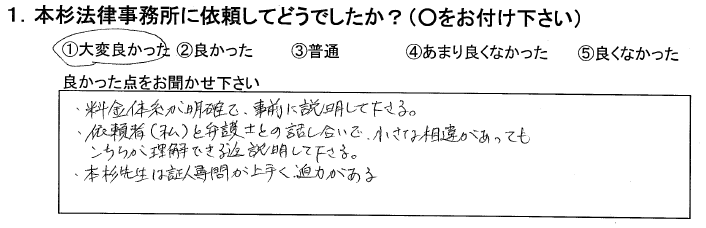 1．本杉法律事務所に依頼してどうでしたか？（〇をお付け下さい）
①大変良かった ②良かった ③普通 ④あまり良くなかった ⑤良くなかった
良かった点をお聞かせ下さい
・料金体系が明確で、事前に説明して下さる。
・依頼者（私）と弁護士との話し合いで、小さな相違があっても
こちらが理解できる迄説明して下さる。
・本杉先生は証人尋問が上手く迫力がある